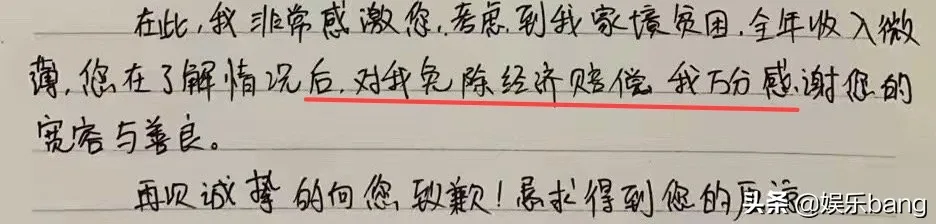 在此,我非常感激您,考虑到我家境贫困,全年收入微
薄,您在了解情况后,对我免除经济赔偿,我万分感谢您的
宽容与善良。
再次诚挚的向您致歉!恳求得到您的原谅
头条@娱乐bang